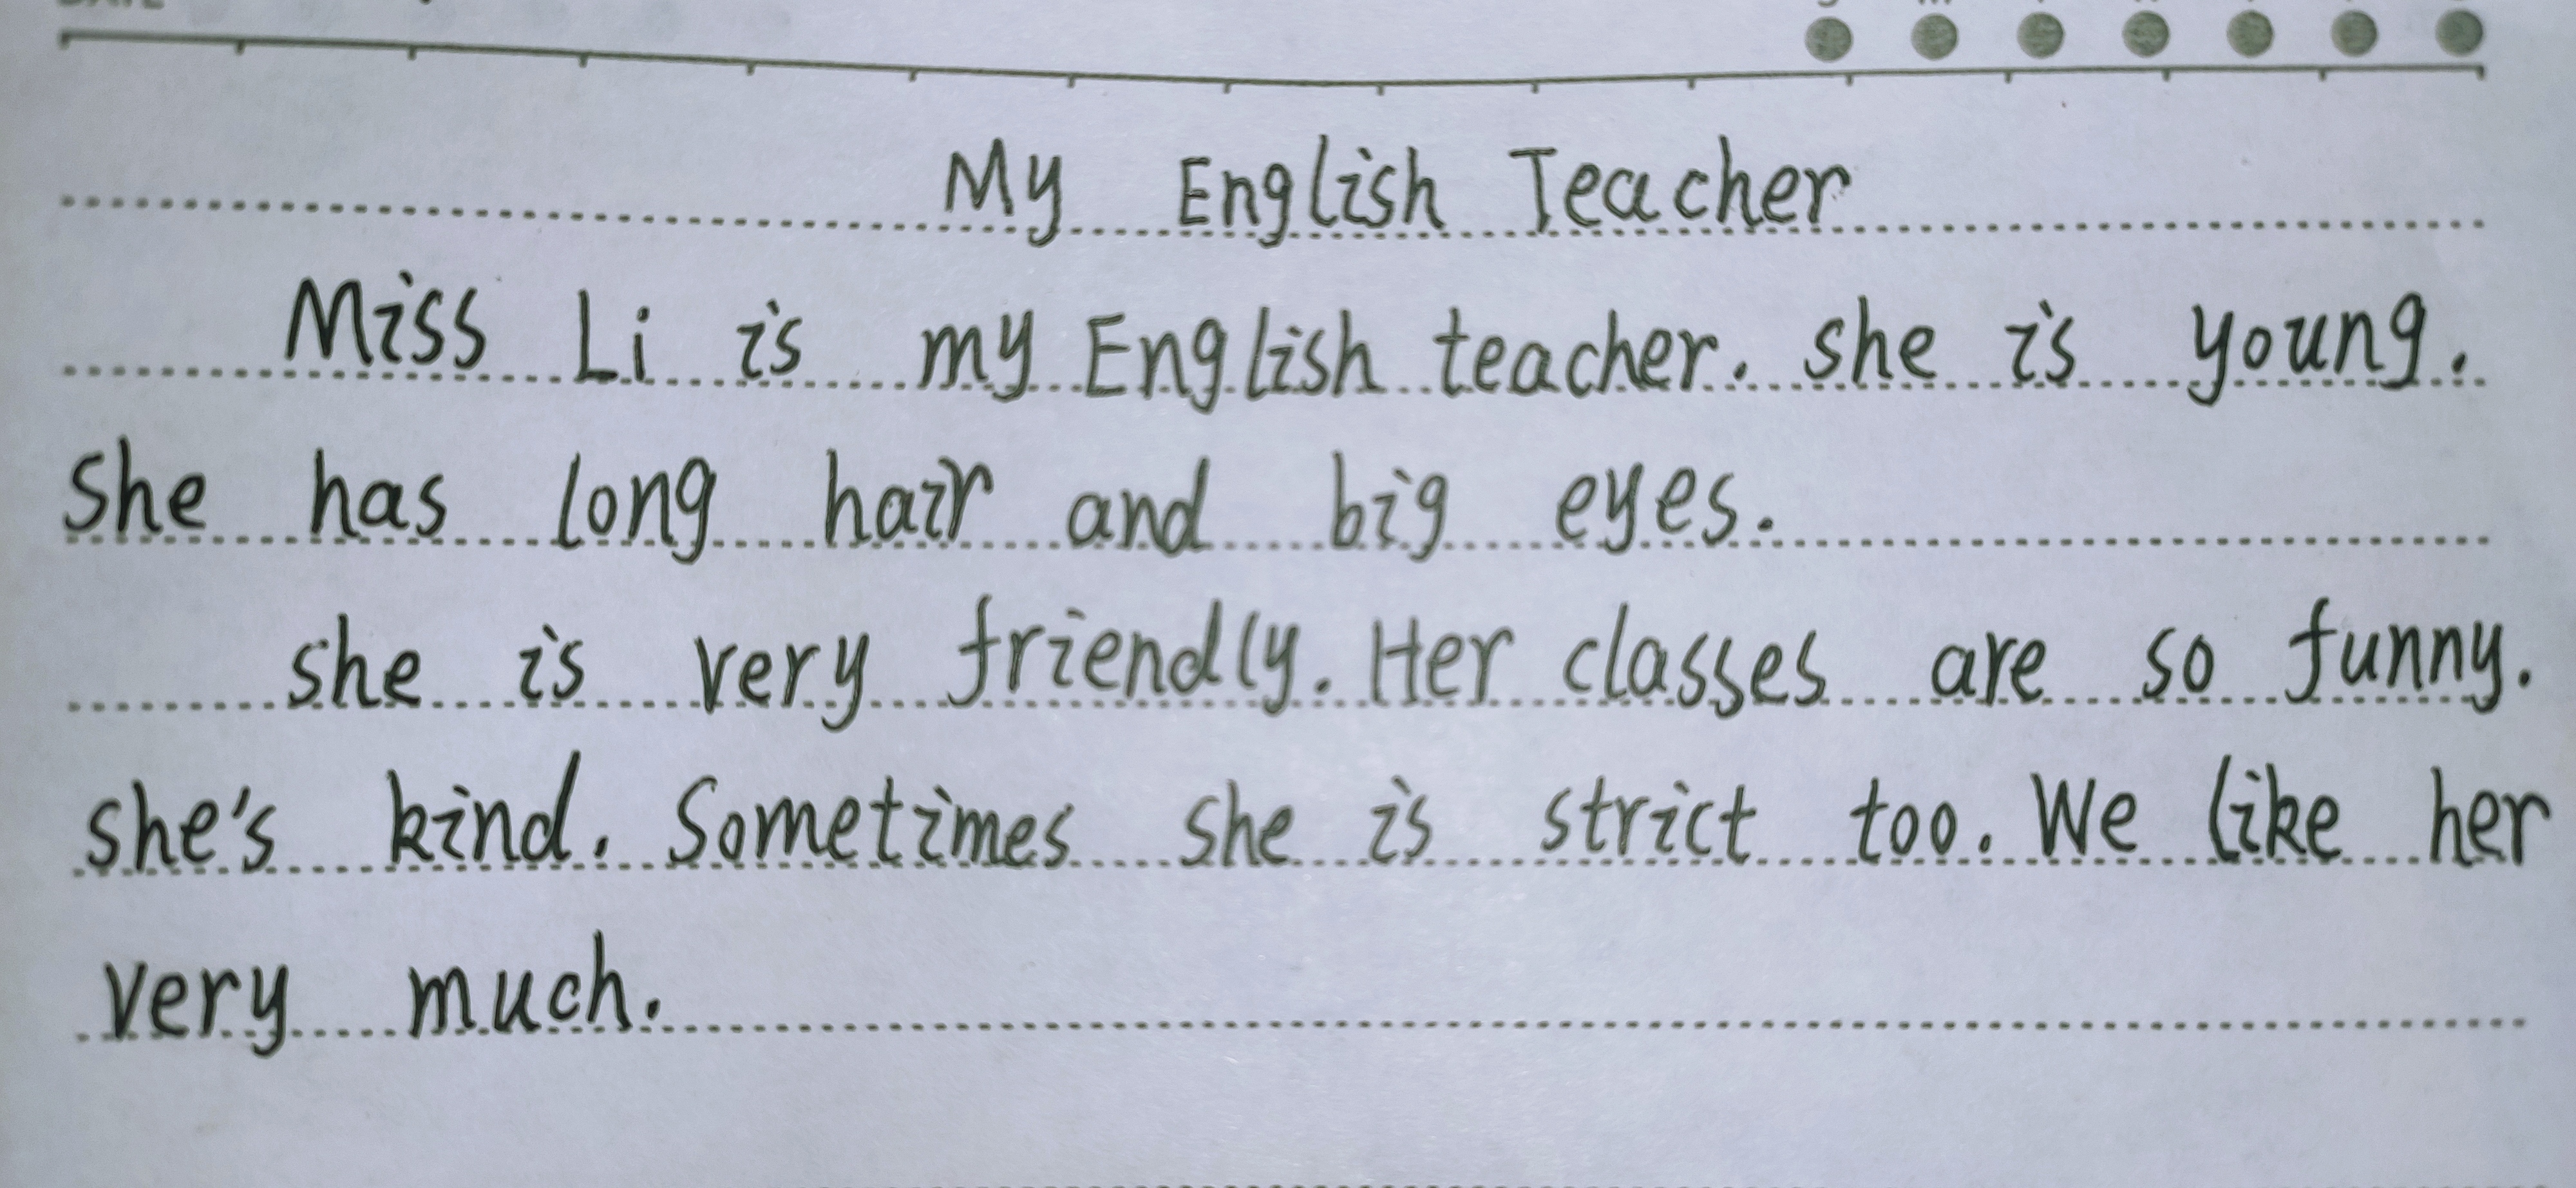 My English Teacher
Miss Li is my English teacher. she is young.
She has long hair and big eyes.
she is very friendly. Her classes are so funny.
she's kind. Sometimes she is strict too. We like her
very much.